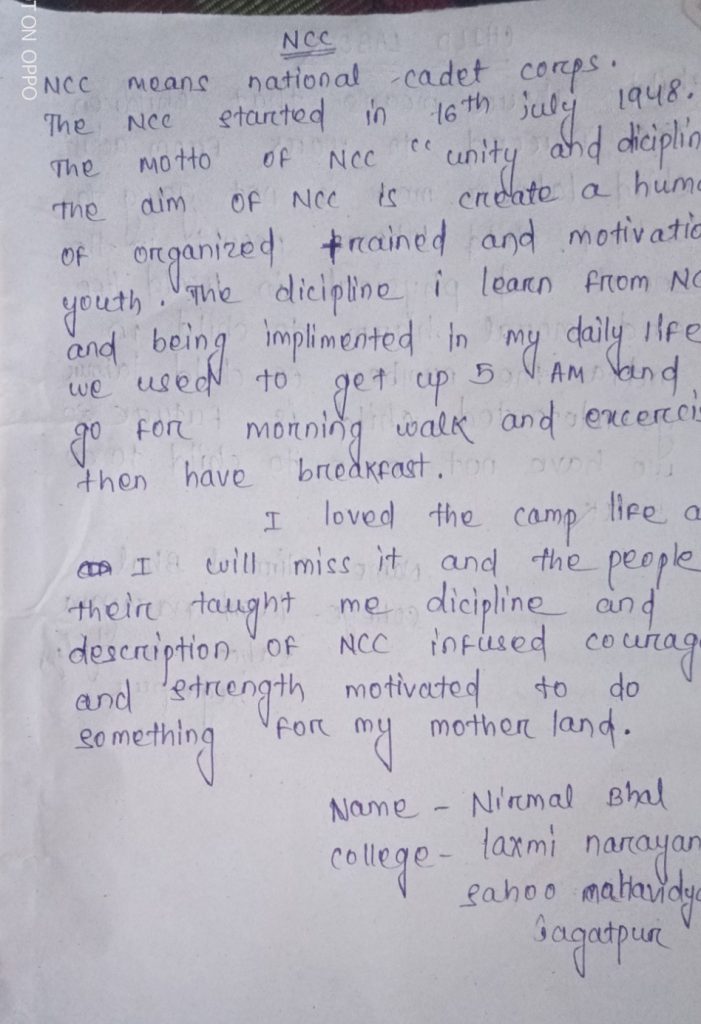 NCC
NCC means national cadet corps.
The NCC started in 16th july 1948.
The motto of NCC "unity and diciplin
The aim of NCC is create a huma
of organized trained and motivatio
youth. The dicipline i learn from NC
and being implimented in my daily life
we used to get up 5 AM and
go for morning walk and excercis
then have breakfast.
I loved the camp life a
I will miss it and the people
their taught me dicipline and
description of NCC infused courag
and strength motivated to do
something for my mother land.
Name - Nirmal Bhal
college - laxmi narayan
sahoo mahavidya
Jagatpur
T ON OPPO